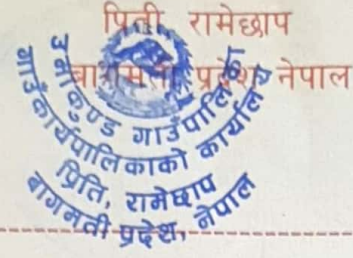 प्रिती रामेछाप
बागमती प्रदेश नेपाल
उमाकुण्ड गाउँपालिका
गाउँकार्यपालिकाको कार्यालय
प्रिति, रामेछाप
बागमती प्रदेश, नेपाल